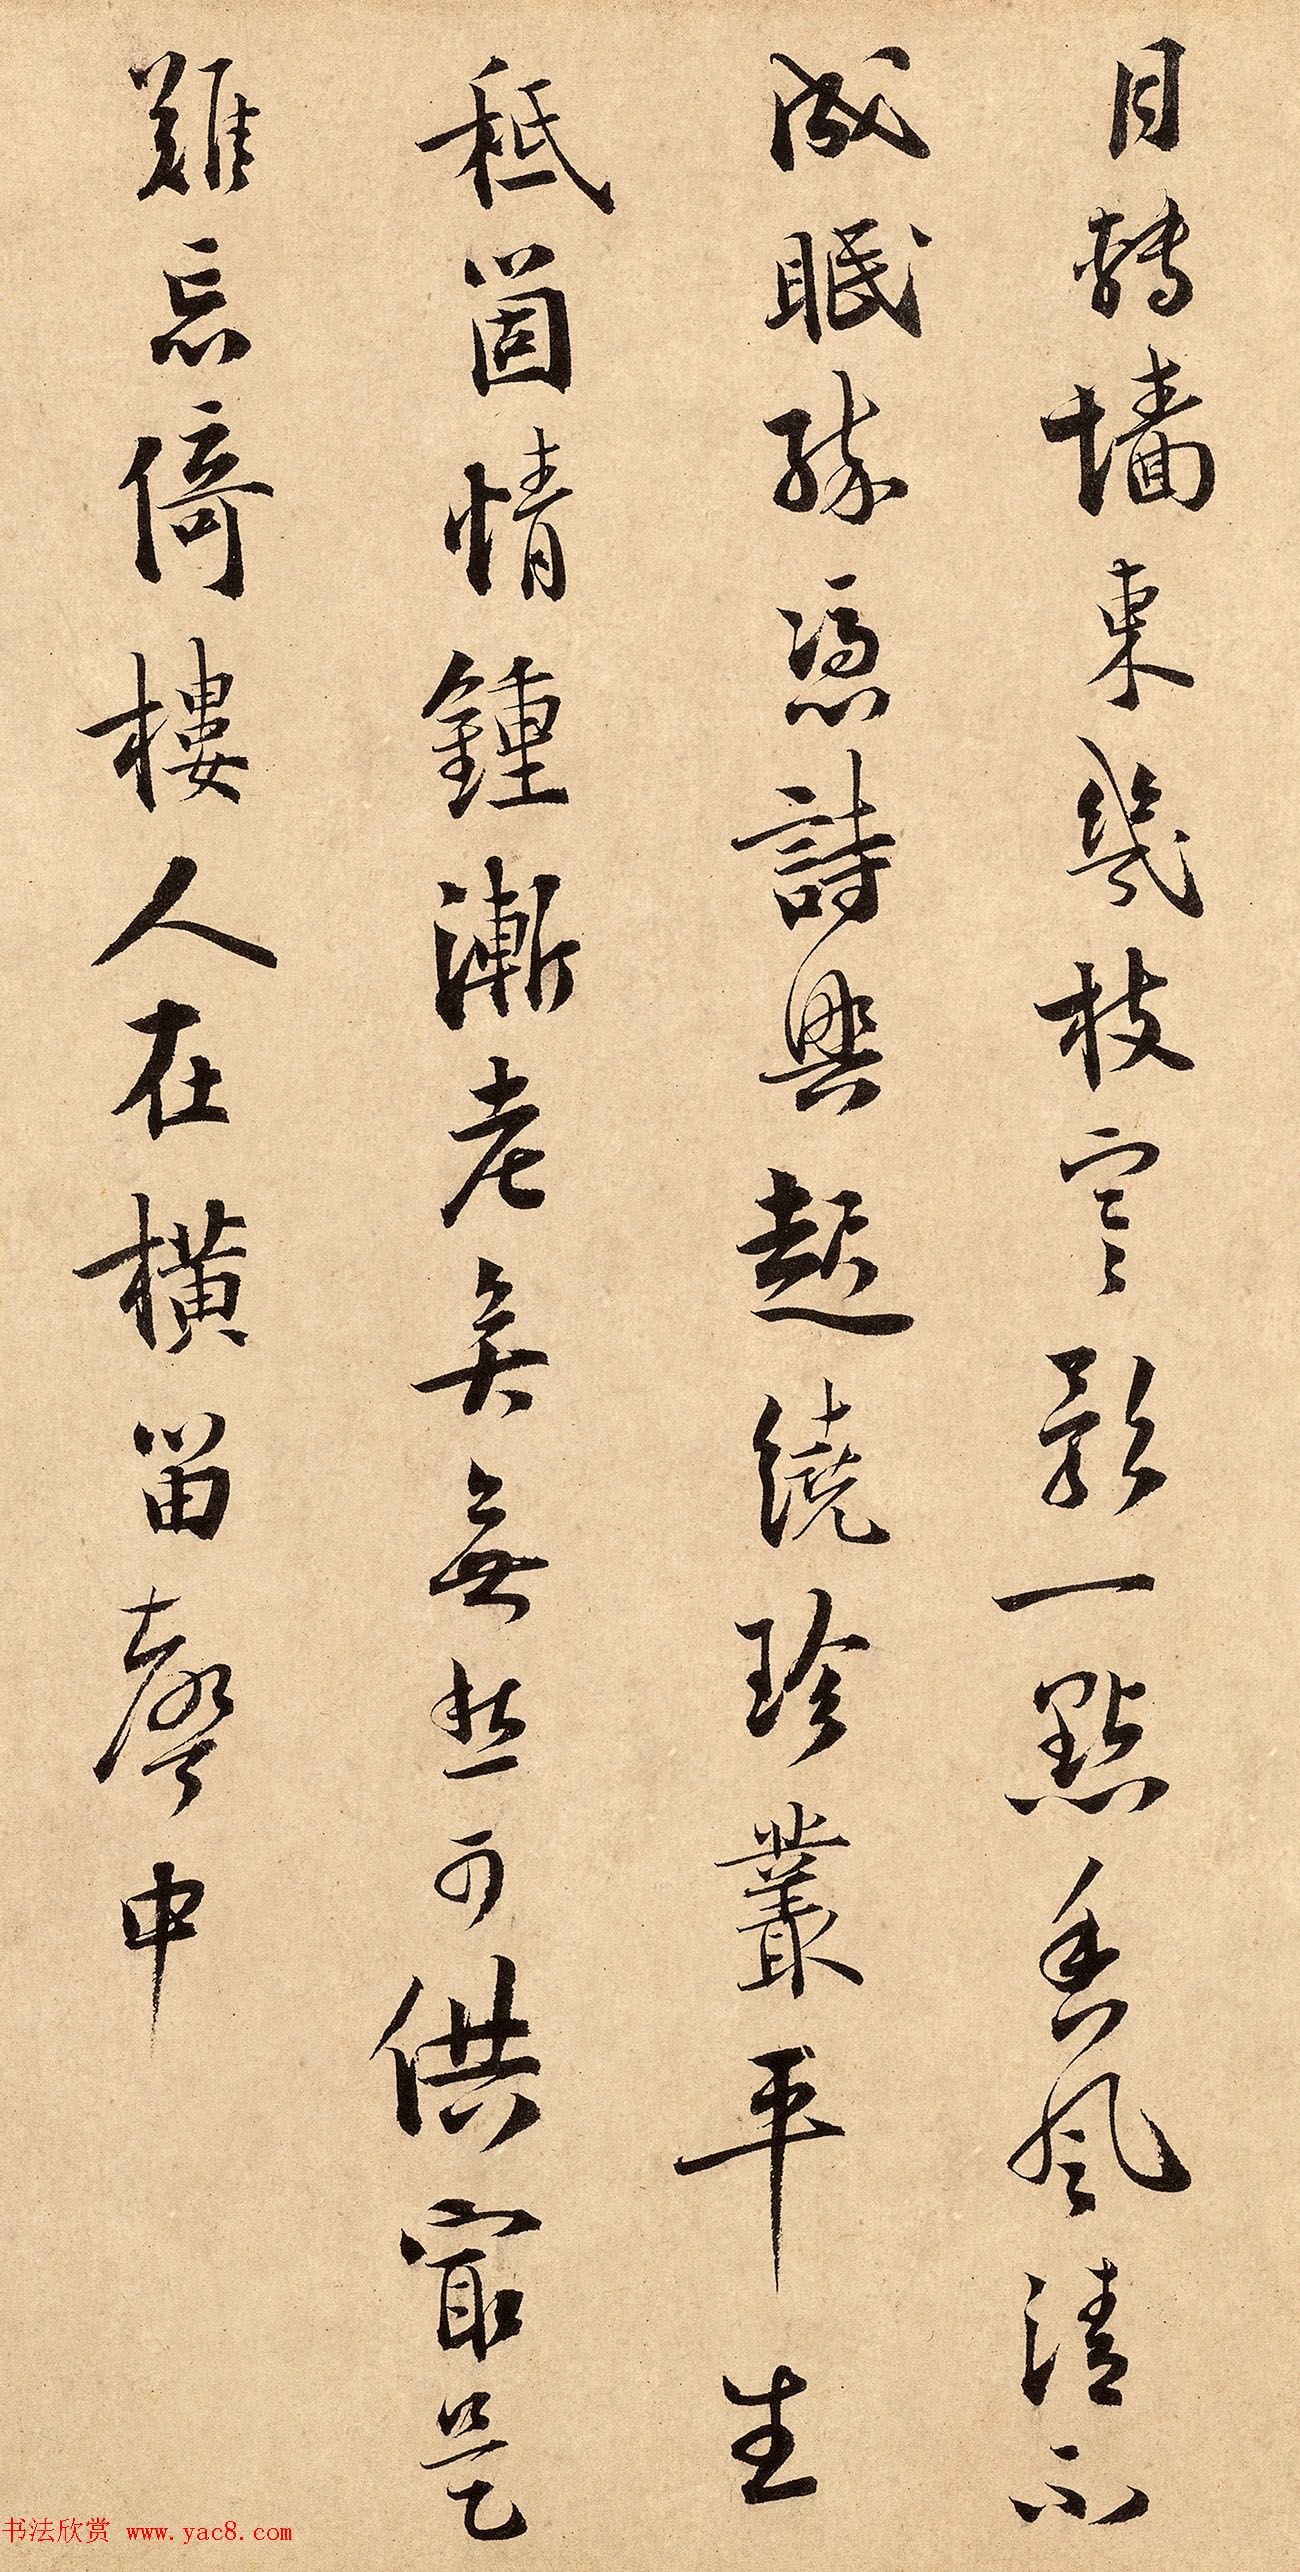 月轉墻東幾枝寒影一點香風清不
成眠醉憑詩興起繞珍叢平生
秪箇情鍾漸老矣無愁可供㝡是
難忘倚樓人在橫笛聲中
书法欣赏 www.yac8.com